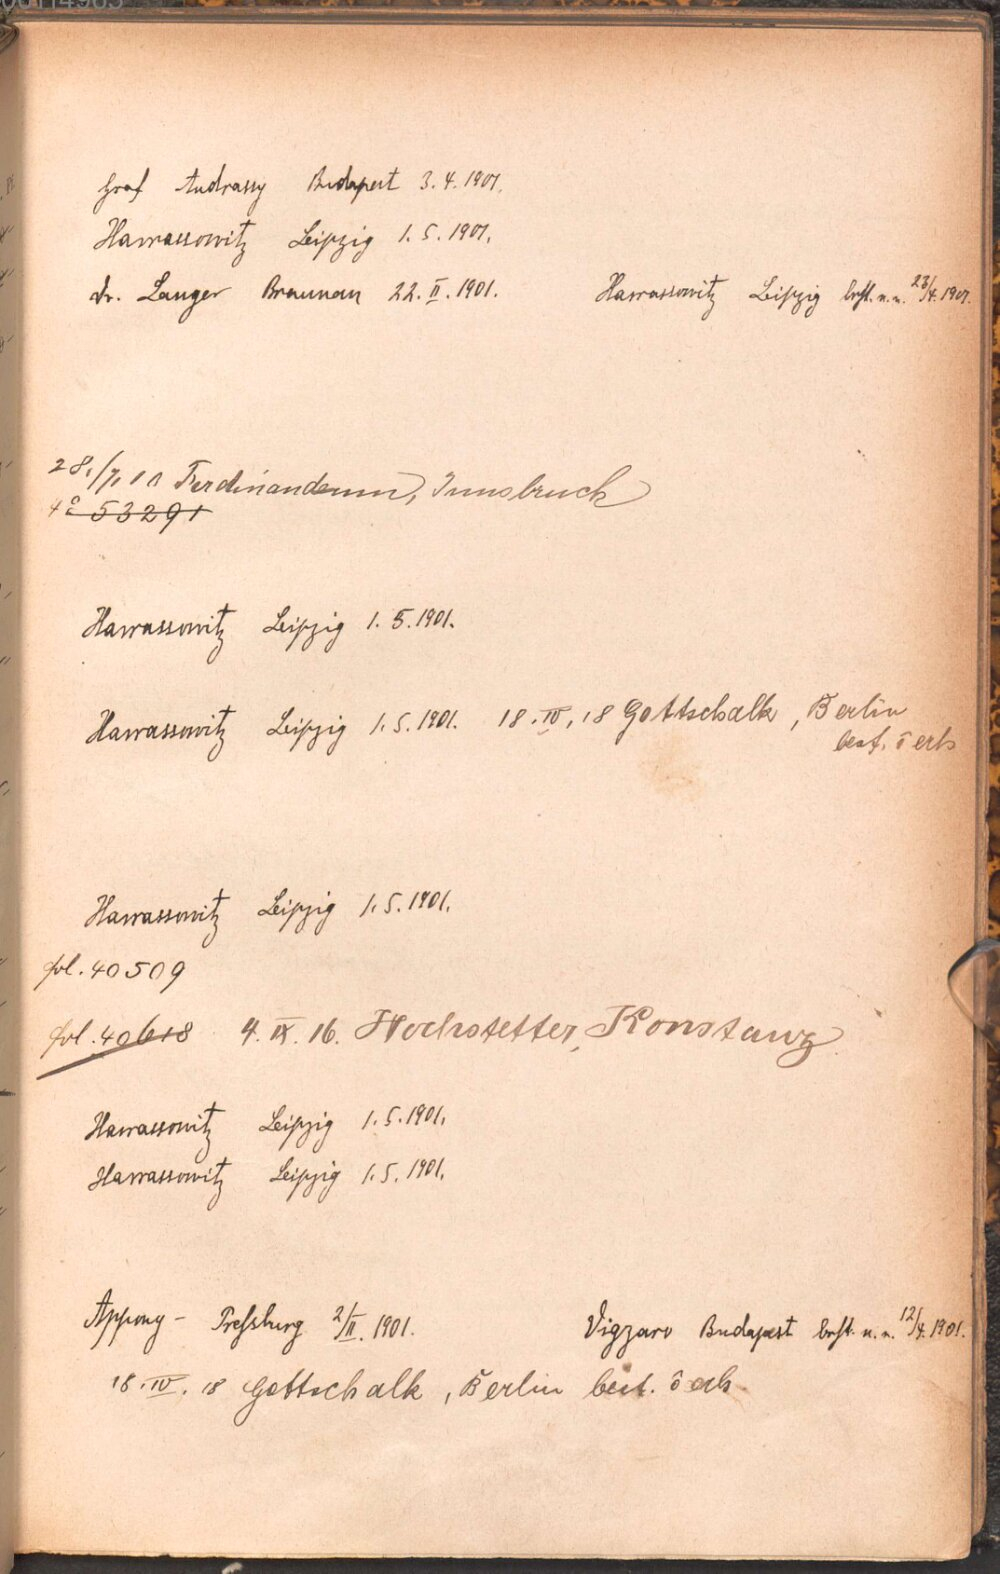 Graf Andrassy Budapest 3. 4. 1901.
Harrassowitz Leipzig 1. 5. 1901.
Dr. Langer Braunau 22. II. 1901. Harrassowitz Leipzig best. n. n. 23/4. 1901.
28./7. 11 Ferdinandeum, Innsbruck
4° 53291
Harrassowitz Leipzig 1. 5. 1901.
Harrassowitz Leipzig 1. 5. 1901. 18. IV. 18 Gottschalk, Berlin
best. o erh
Harrassowitz Leipzig 1. 5. 1901.
fol. 40509
fol. 40618 4. IX. 16. Hochstetter, Konstanz
Harrassowitz Leipzig 1. 5. 1901.
Harrassowitz Leipzig 1. 5. 1901.
Appony - Pressburg 2/II. 1901. Vigzaro Budapest best. n. n. 12/4. 1901.
18. IV. 18 Gottschalk, Berlin best. o erh.